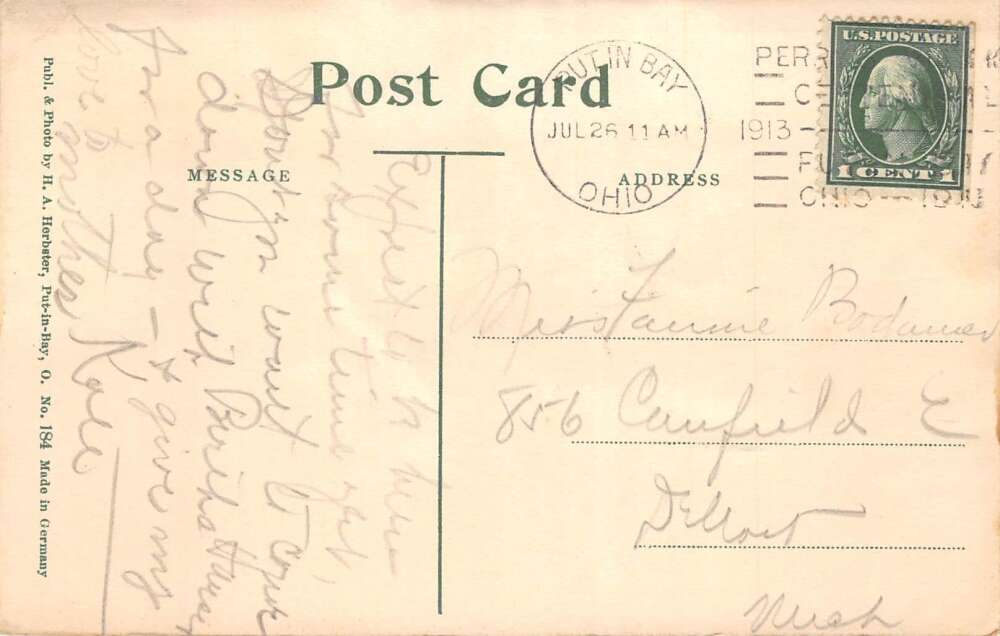 Post Card
MESSAGE
ADDRESS
PUT IN BAY
JUL 26 11 AM
OHIO
1913
OHIO
U.S. POSTAGE
1 CENT 1
Expect to be here
for some time yet,
Don't you want to come
down with Bertha
for a day - & give my
love to mother
Miss Fannie Bodamer
856 Canfield E
Detroit
Mich
Publ. & Photo by H. A. Herbster, Put-in-Bay, O. No. 184 Made in Germany